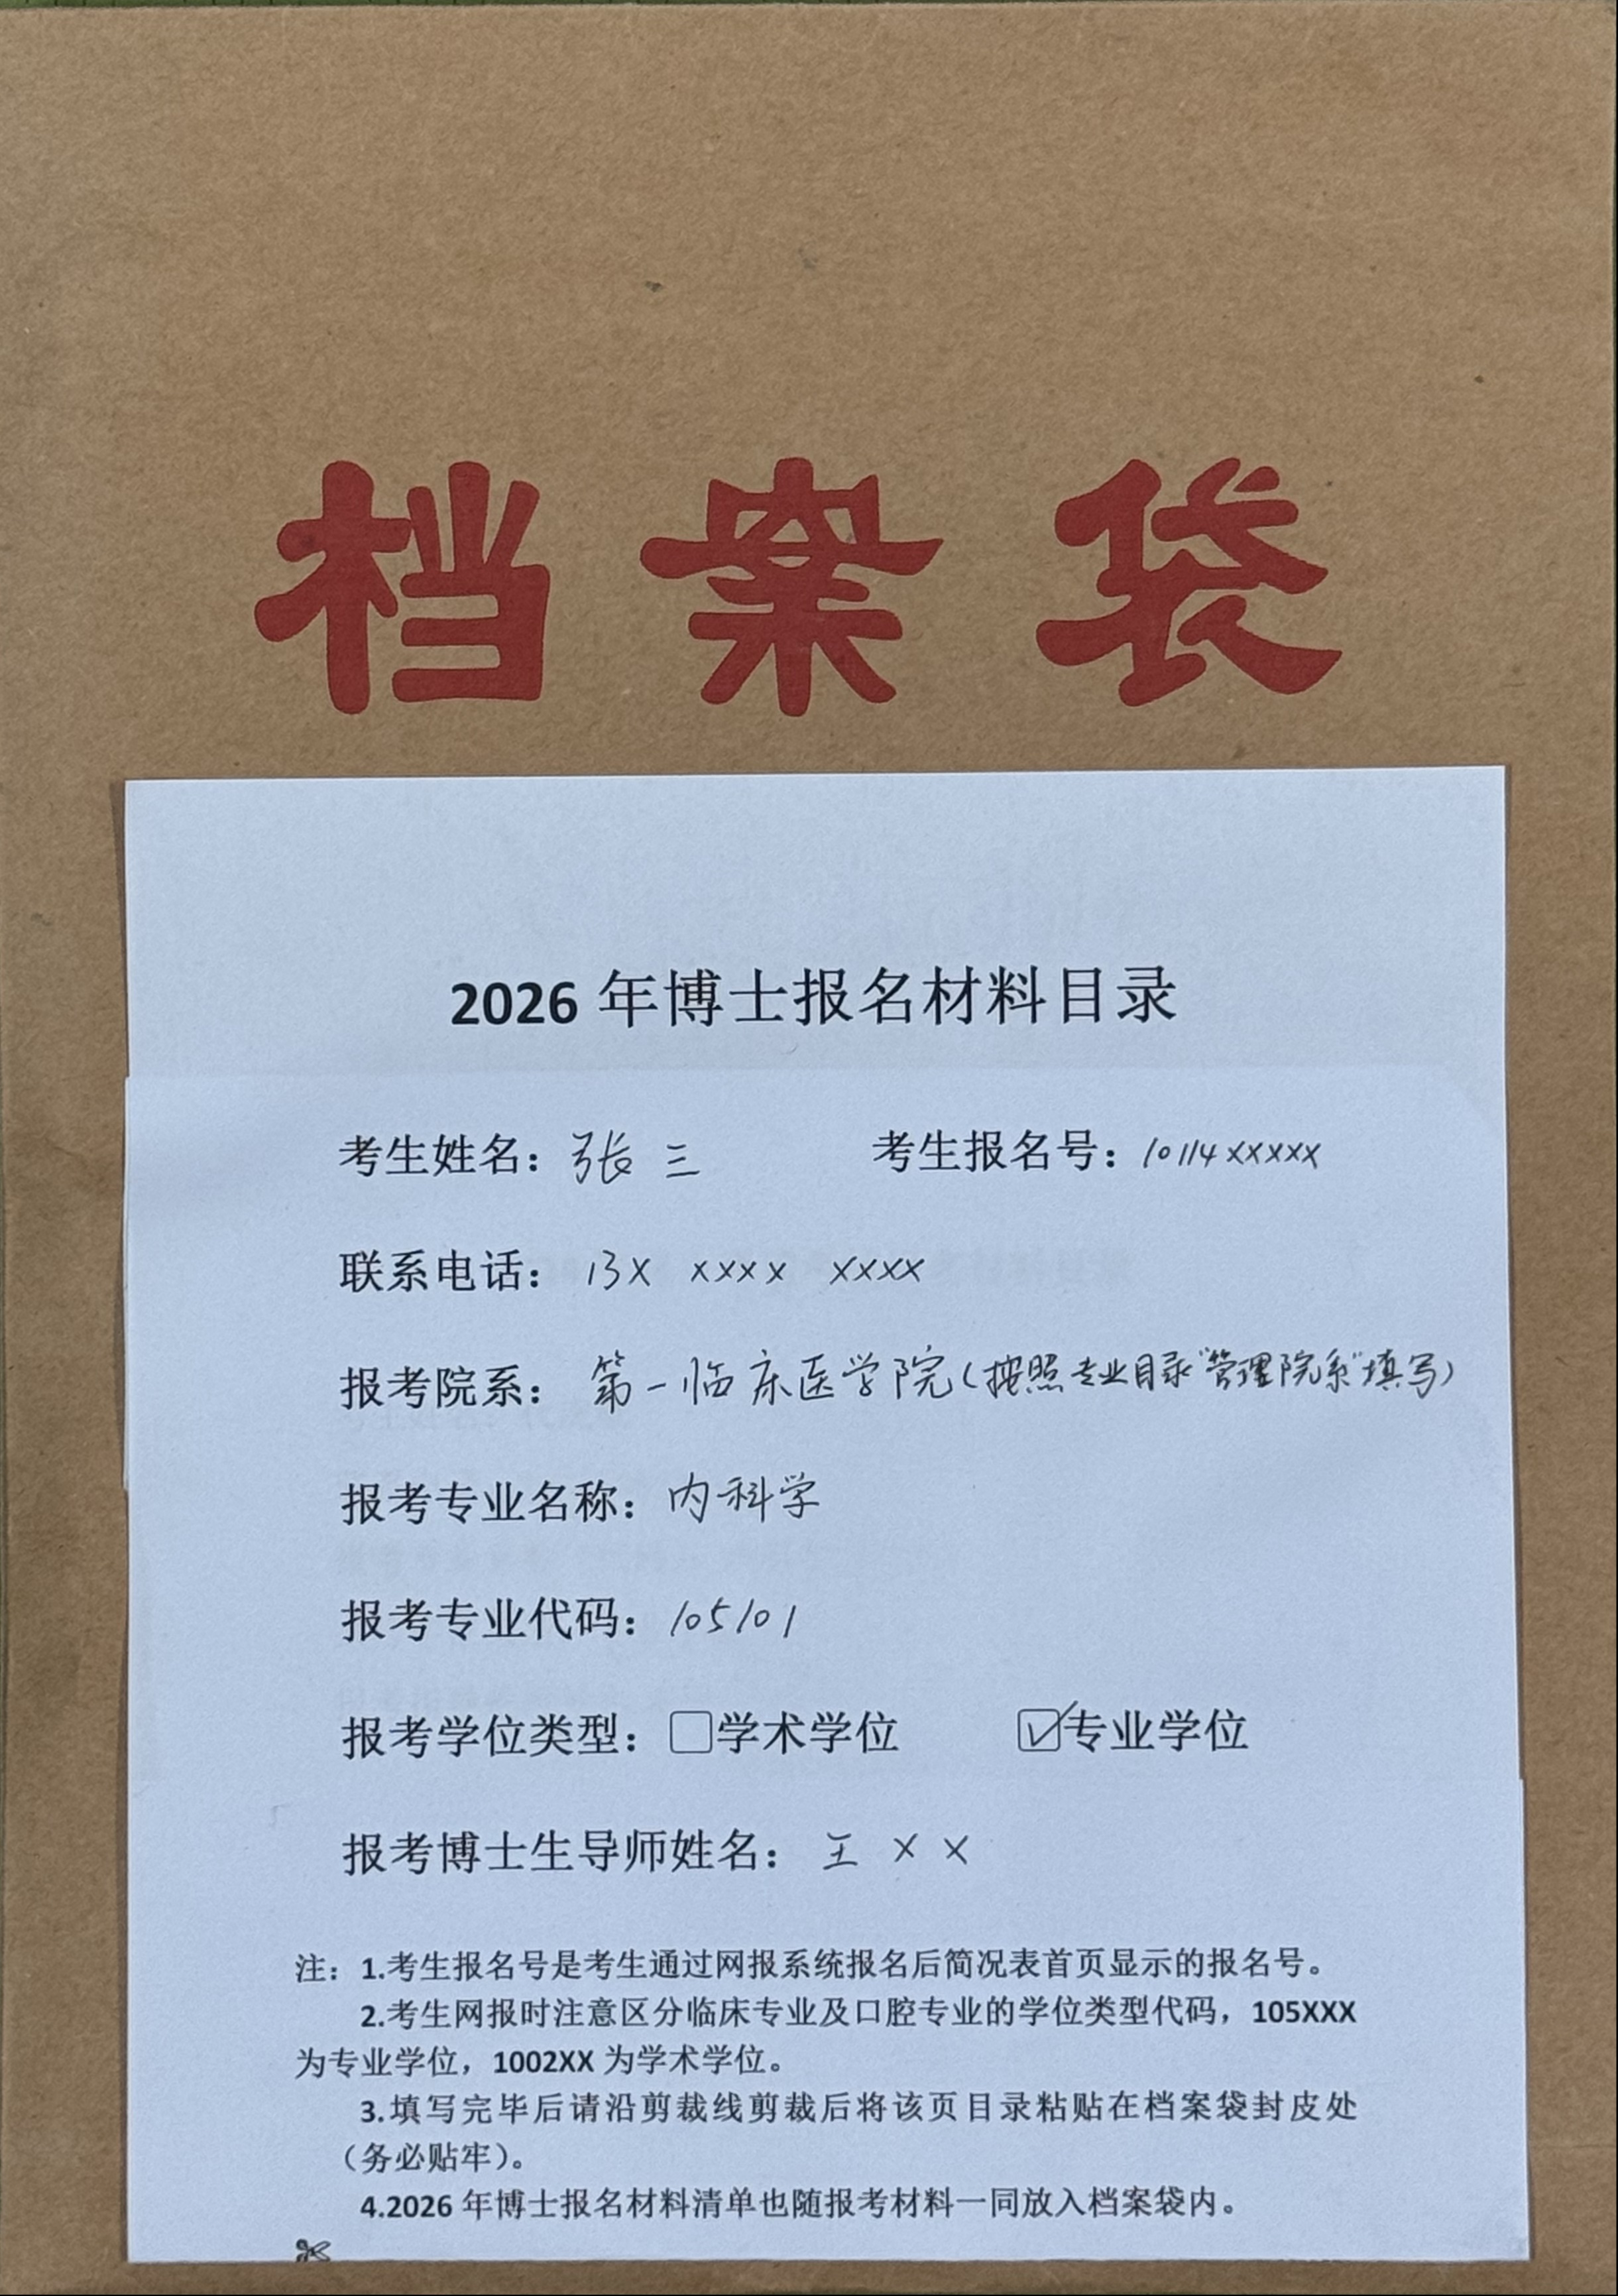 档案袋
2026 年博士报名材料目录
考生姓名：张三 考生报名号：10114xxxxx
联系电话：13X xxxx xxxx
报考院系：第一临床医学院（按照专业目录"管理院系"填写）
报考专业名称：内科学
报考专业代码：105101
报考学位类型：□学术学位 ☑专业学位
报考博士生导师姓名：王 X X
注：1.考生报名号是考生通过网报系统报名后简况表首页显示的报名号。
2.考生网报时注意区分临床专业及口腔专业的学位类型代码，105XXX
为专业学位，1002XX 为学术学位。
3.填写完毕后请沿剪裁线剪裁后将该页目录粘贴在档案袋封皮处
（务必贴牢）。
4.2026 年博士报名材料清单也随报考材料一同放入档案袋内。